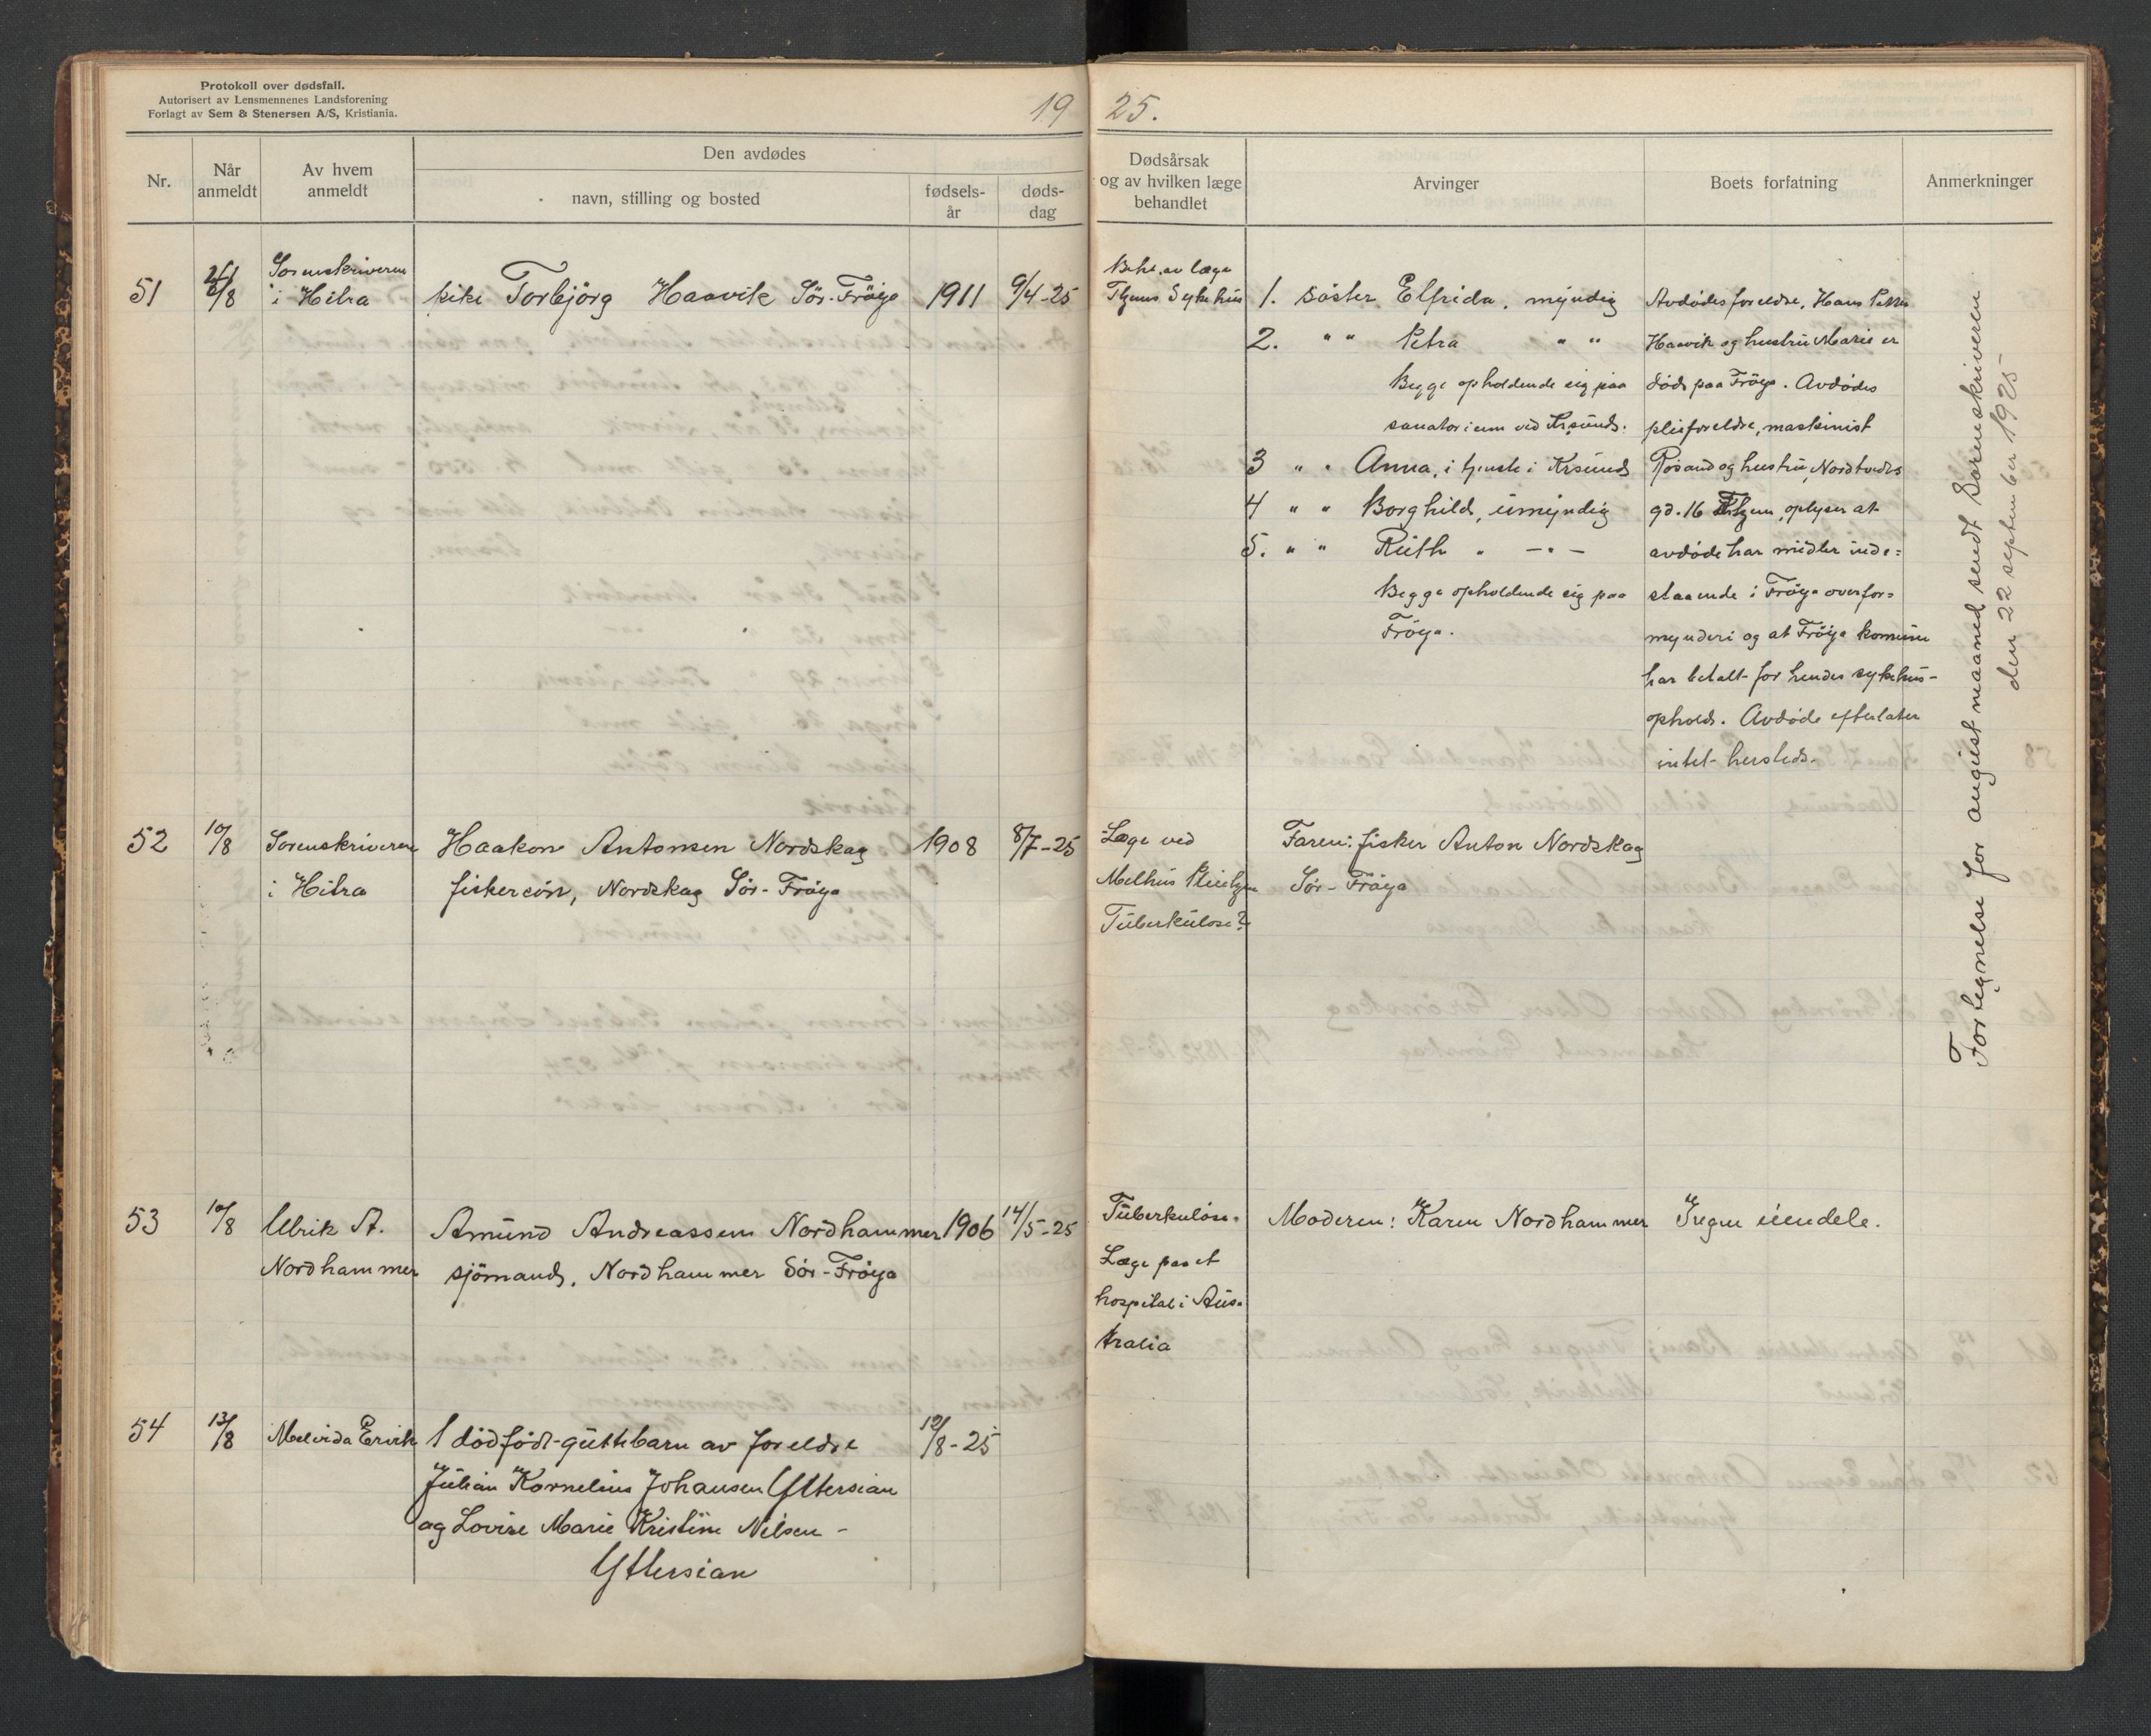 Protokoll over dødsfall.
Autorisert av Lensmennenes Landsforening
Forlagt av Sem & Stenersen A/S, Kristiania.
19 25.
Nr.
Når
anmeldt
Av hvem
anmeldt
Den avdødes
navn, stilling og bosted
fødsels-
år
døds-
dag
Dødsårsak
og av hvilken læge
behandlet
Arvinger
Boets forfatning
Anmerkninger
51
/8
Sorenskriveren
i Hitra
pike Torbjörg Haavik Sör-Fröya
1911
9/4-25
Beh. av læge
Thjems Sykehus
1. Söster Elfrida, myndig
2. " " Petra " "
Begge opholdende sig paa
sanatorium ved Krsund.
3 " " Anna, i tjeneste i Krsund
4 " " Borghild, umyndig
5. " " Ruth " — " —
Begge opholdende sig paa
Fröya.
Avdödes foreldre, Hans Petter
Haavik og hustru Marie er
död paa Fröya. Avdödes
pleieforeldre, maskinist
Rösand og hustru, Nordtvedts
gd. 16 Thjem, oplyser at
avdöde har midler inde=
staaende i Fröya overfor=
mynderi og at Fröya komune
har betalt for hendes sykehus-
ophold. Avdöde efterlater
intet hersteds.
Fortegnelse for august maaned sendt Sorenskriveren
den 22 september 1925
52
10/8
Sorenskriveren
i Hitra
Haakon Antonsen Nordskag
fiskersön, Nordskag Sör-Fröya
1908
8/7-25
Læge ved
Melhus Pleiehjem
Tuberkulose?
Faren: fisker Anton Nordskag
Sör-Fröya
53
10/8
Ulrik A.
Nordhammer
Amund Andreassen Nordhammer
sjömand, Nordhammer Sör-Fröya
1906
14/5-25
Tuberkulose.
Læge paa et
hospital i Aus=
tralia
Moderen: Karen Nordhammer
Ingen eiendele.
54
13/8
Melvida Ervik
1 dödfödt guttebarn av foreldre
Julian Kornelius Johansen Yttersian
og Lovise Marie Kristine Nilsen -
Yttersian
12/8-25